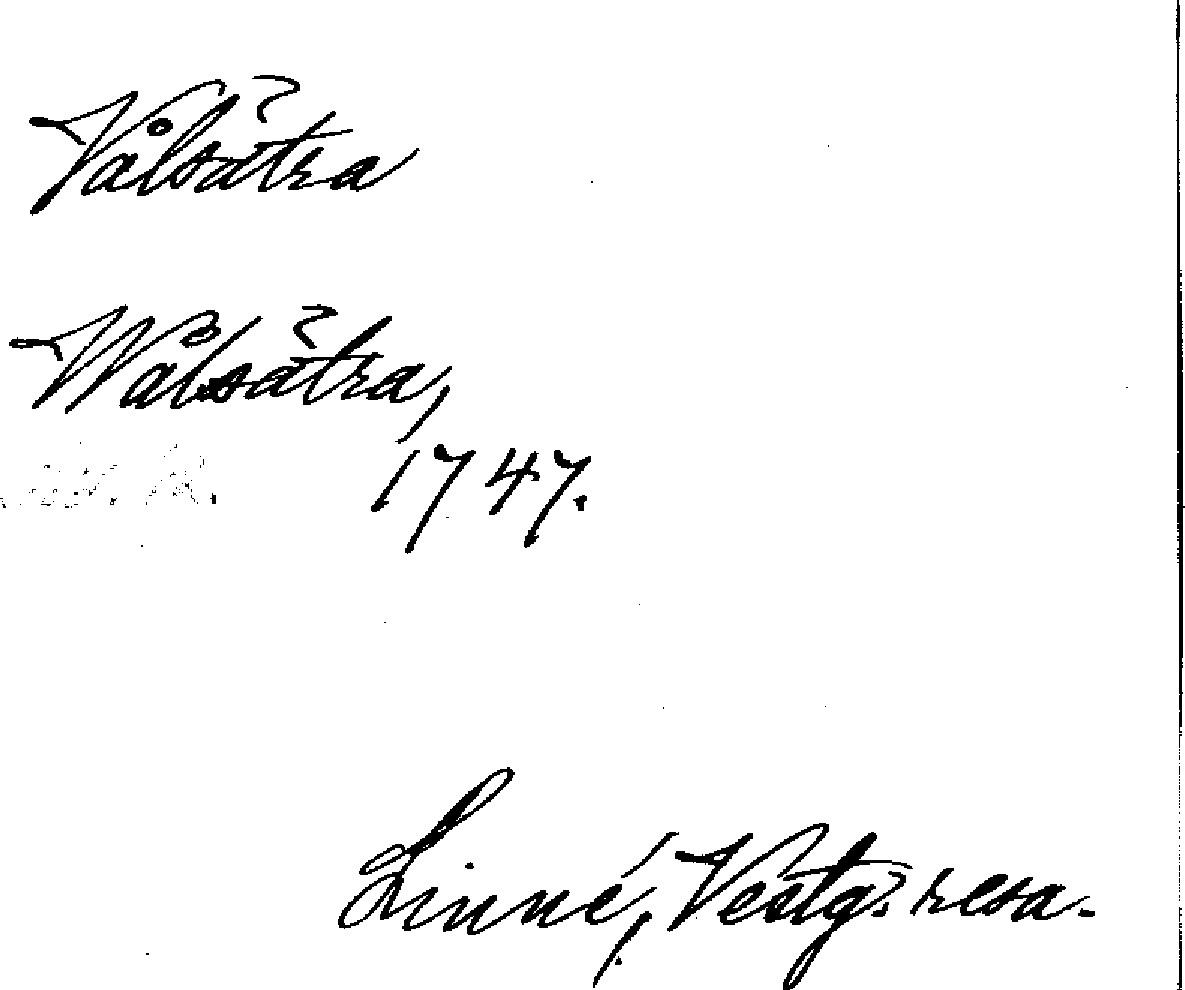 Vålsätra
Wålsätra,
1747.
Linné, Vestg: resa.